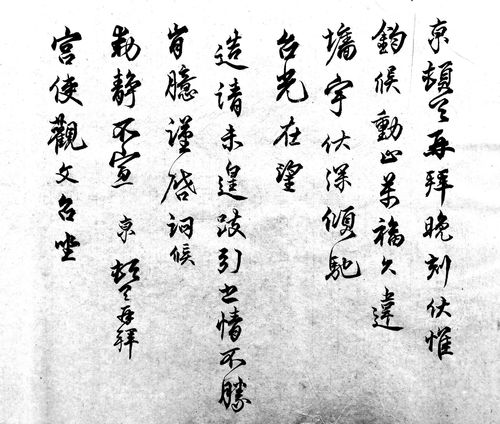 京頓首再拜晚刻伏惟
鈞候動止萬福久違
墻宇伏深傾馳
台光在望
造請未遑跂引之情不勝
胷臆謹啓詞候
動靜不宣 京 頓首再拜
宮使觀文台坐